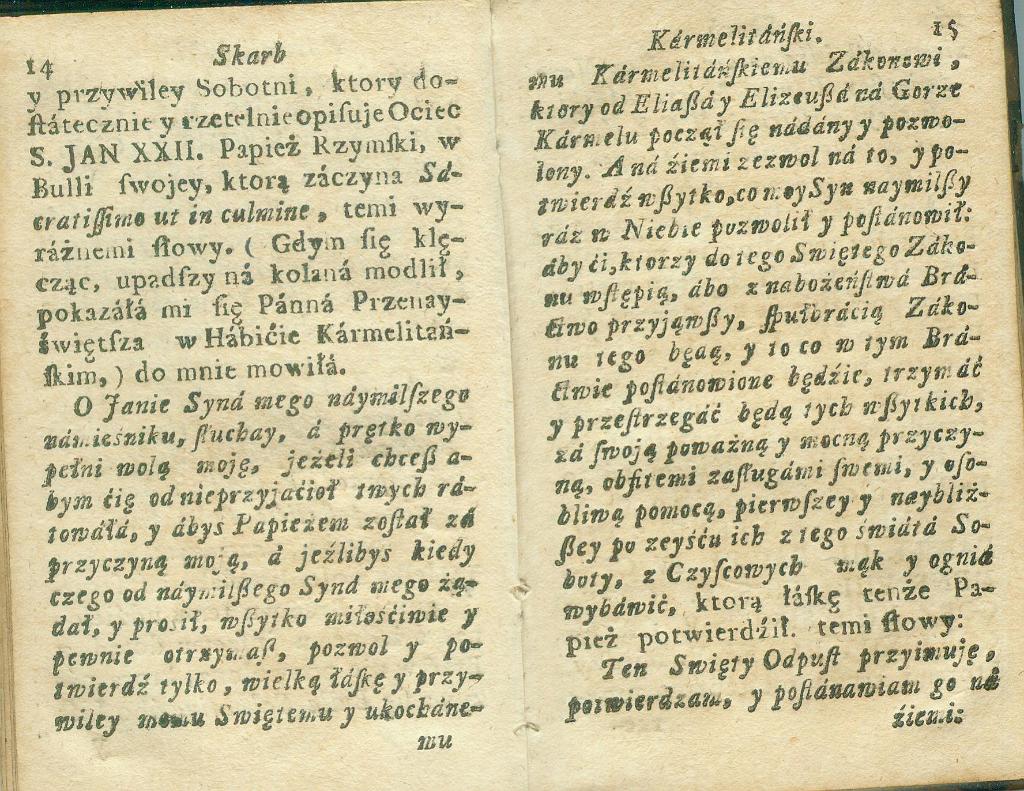 14 Skarb
y przywiley Sobotni, ktory do-
ſtátecznie y rzetelnie opiſuje Ociec
S. JAN XXII. Papież Rzymſki, w
Bulli ſwojey, ktorą záczyna Sá-
cratiſſimo ut in culmine, temi wy-
ráźnemi ſłowy. ( Gdym ſię klę-
cząc, upadſzy ná kolaná modlił,
pokazáłá mi ſię Pánná Przenay-
świętſza w Hábićie Kármelitań-
ſkim, ) do mnie mowiłá.
O Janie Syná mego náymilſzego
námieśniku, ſłuchay, á prętko wy-
pełni wolą moję, jeżeli chceß a-
bym ćię od nieprzyjaćioł twych rá-
towáłá, y ábys Papieżem zoſtał zá
przyczyną moją, á jeźlibys kiedy
czego od náymilßego Syná mego żą-
dał, y proſił, wßytko miłośćiwie y
pewnie otrzymaſt, pozwol y po-
twierdź tylko, wielką łáſkę y przy-
wiley memu Swiętemu y ukocháne-
mu
Kármelitáńſki. 15
mu Kármelitáńſkiemu Zákonowi,
ktory od Eliaßá y Elizeußá ná Gorze
Kármelu począł ſię nádány y pozwo-
lony. A ná źiemi zezwol ná to, y po-
twierdź wßytko, co moy Syn naymilßy
ráz w Niebie pozwolił y poſtánowił:
áby ći, ktorzy do tego Swiętego Záko-
nu wſtępią, ábo z nabożeńſtwá Brá-
ctwo przyjąwßy, ſpułbrácią Záko-
nu tego będą, y to co w tym Brá-
ctwie poſtánowione będźie, trzymáć
y przeſtrzegáć będą tych wßytkich,
zá ſwoją poważną y mocną przyczy-
ną, obfitemi zaſługámi ſwemi, y oſo-
bliwą pomocą, pierwſzey y naybliż-
ßey po zeyśću ich z tego świátá So-
boty, z Czyſcowych mąk y ogniá
wybáwić, ktorą łáſkę tenże Pa-
pież potwierdźił. temi ſłowy:
Ten Swięty Odpuſt przyimuję,
potwierdzam, y poſtánawiam go ná
źiemi: